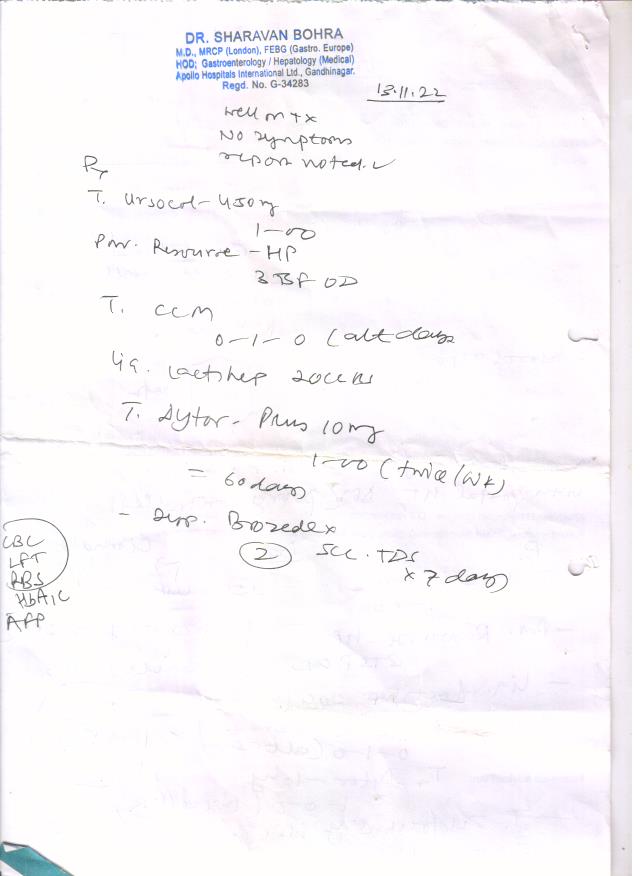 DR. SHARAVAN BOHRA
M.D., MRCP (London), FEBG (Gastro. Europe)
HOD; Gastroenterology / Hepatology (Medical)
Apollo Hospitals International Ltd., Gandhinagar.
Regd. No. G-34283
13.11.22
well on tx
No symptoms
report noted. ✓
Rx
T. Ursocol - 450mg
1-00
Pow. Resource - HP
3 TSF OD
T. CCM
0-1-0 (alt days
Liq. Lactihep 20cc
T. Dytor - Plus 10mg
1-00 (twice/wk)
= 60 days
- Syp. Brozedex
2 5cc. TDS
x 7 days
CBC
LFT
RBS
HbA1C
AFP